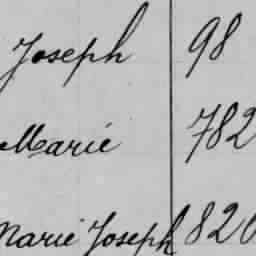 Joseph 98
Marie 782
Marie Joseph 820